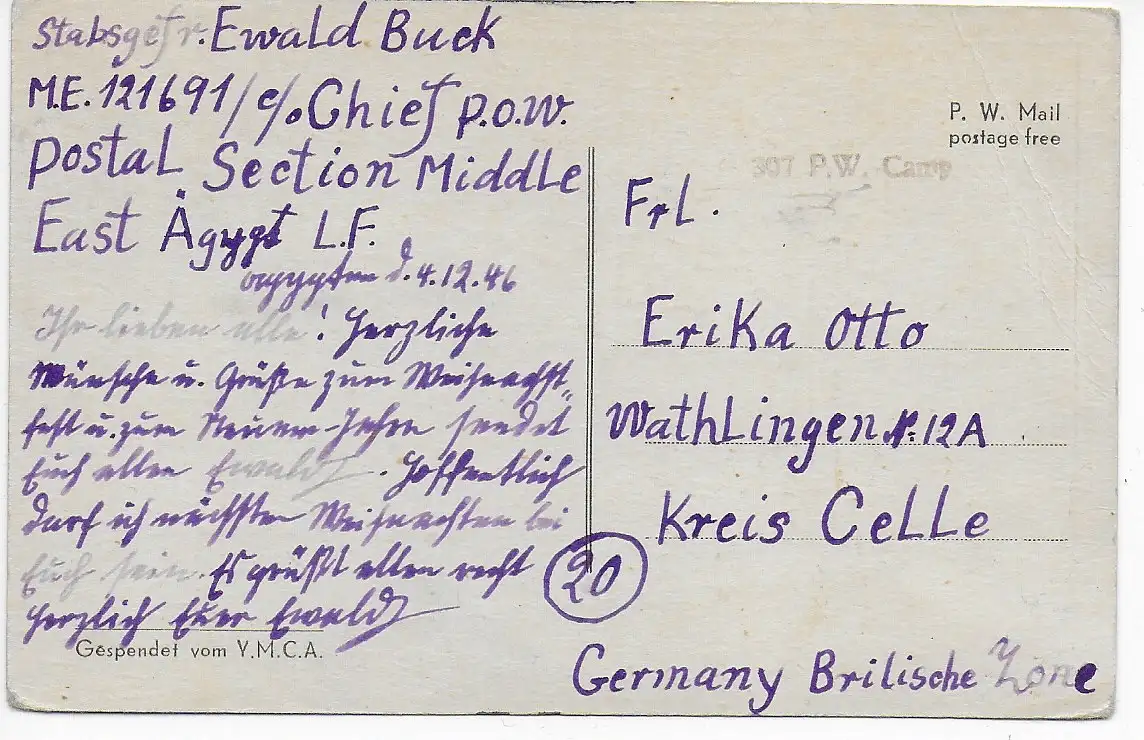 Stabsgefr. Ewald Buck
M.E. 121691/c/o Chief P.O.W.
Postal Section Middle
East Ägypt L.F.
Aegypten d. 4.12.46
Ihr lieben alle! Herzliche
Wünsche u. Grüße zum Weihnachts-
fest u. zum Neuen-Jahre sendet
Euch allen Ewald. Hoffentlich
darf ich nächste Weihnachten bei
Euch sein. Es grüßt allen recht
herzlich Euer Ewald
Gespendet vom Y.M.C.A.
P. W. Mail
postage free
307 P.W. Camp
Frl.
Erika Otto
Wathlingen N: 12A
Kreis Celle
20
Germany Brilische Zone